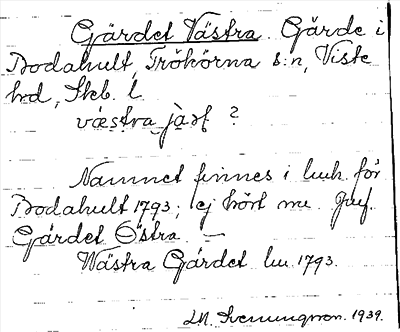 Gärdet Västra. Gärde i
Bodahult, Trökörna s:n, Viste
hd, Skb. l.
væstra jäɖ ?
Namnet finnes i luh. för
Bodahult 1793; ej hört nu. Jmf.
Gärdet Östra. —
Wästra Gärdet lu. 1793.
Svenungsson. 1939.